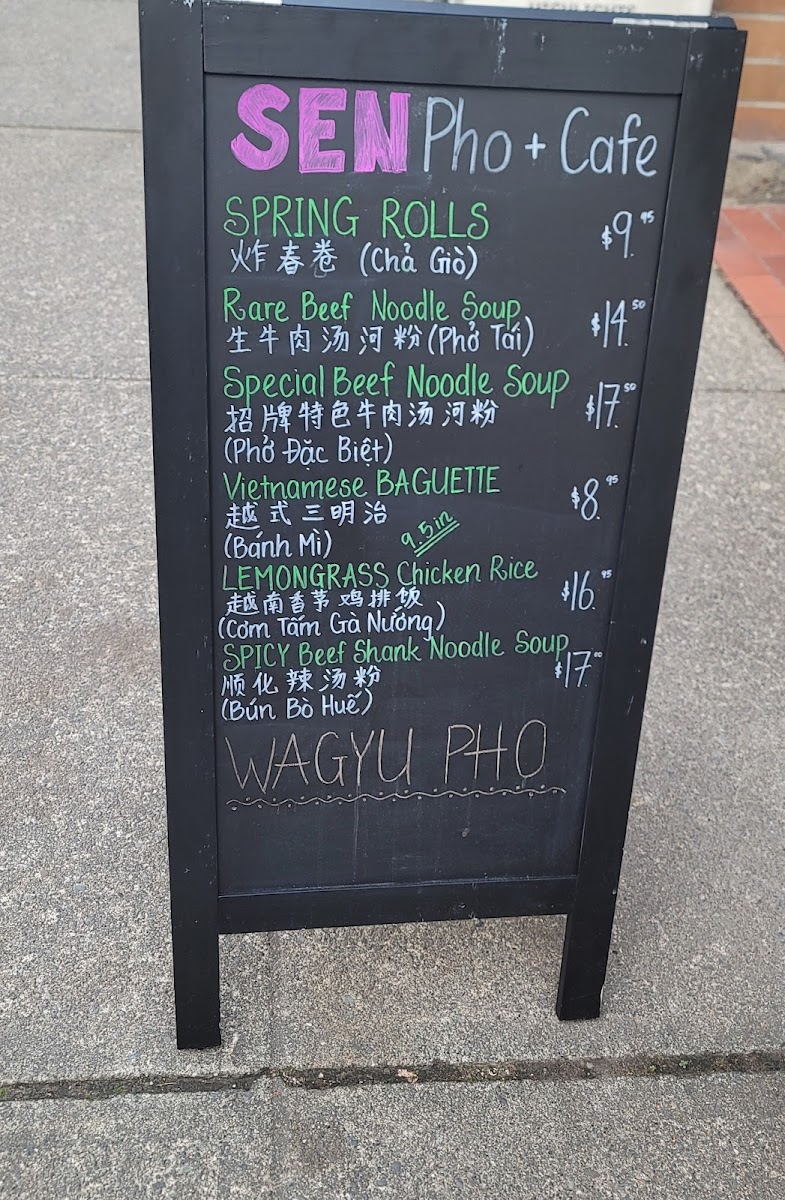 SEN Pho + Cafe
SPRING ROLLS $9.95
炸春卷 (Chả Giò)
Rare Beef Noodle Soup $14.50
生牛肉汤河粉 (Phở Tái)
Special Beef Noodle Soup $17.50
招牌特色牛肉汤河粉
(Phở Đặc Biệt)
Vietnamese BAGUETTE $8.95
越式三明治
(Bánh Mì) 9.5in
LEMONGRASS Chicken Rice $16.95
越南香茅鸡排饭
(Cơm Tấm Gà Nướng)
SPICY Beef Shank Noodle Soup $17.00
顺化辣汤粉
(Bún Bò Huế)
WAGYU PHO